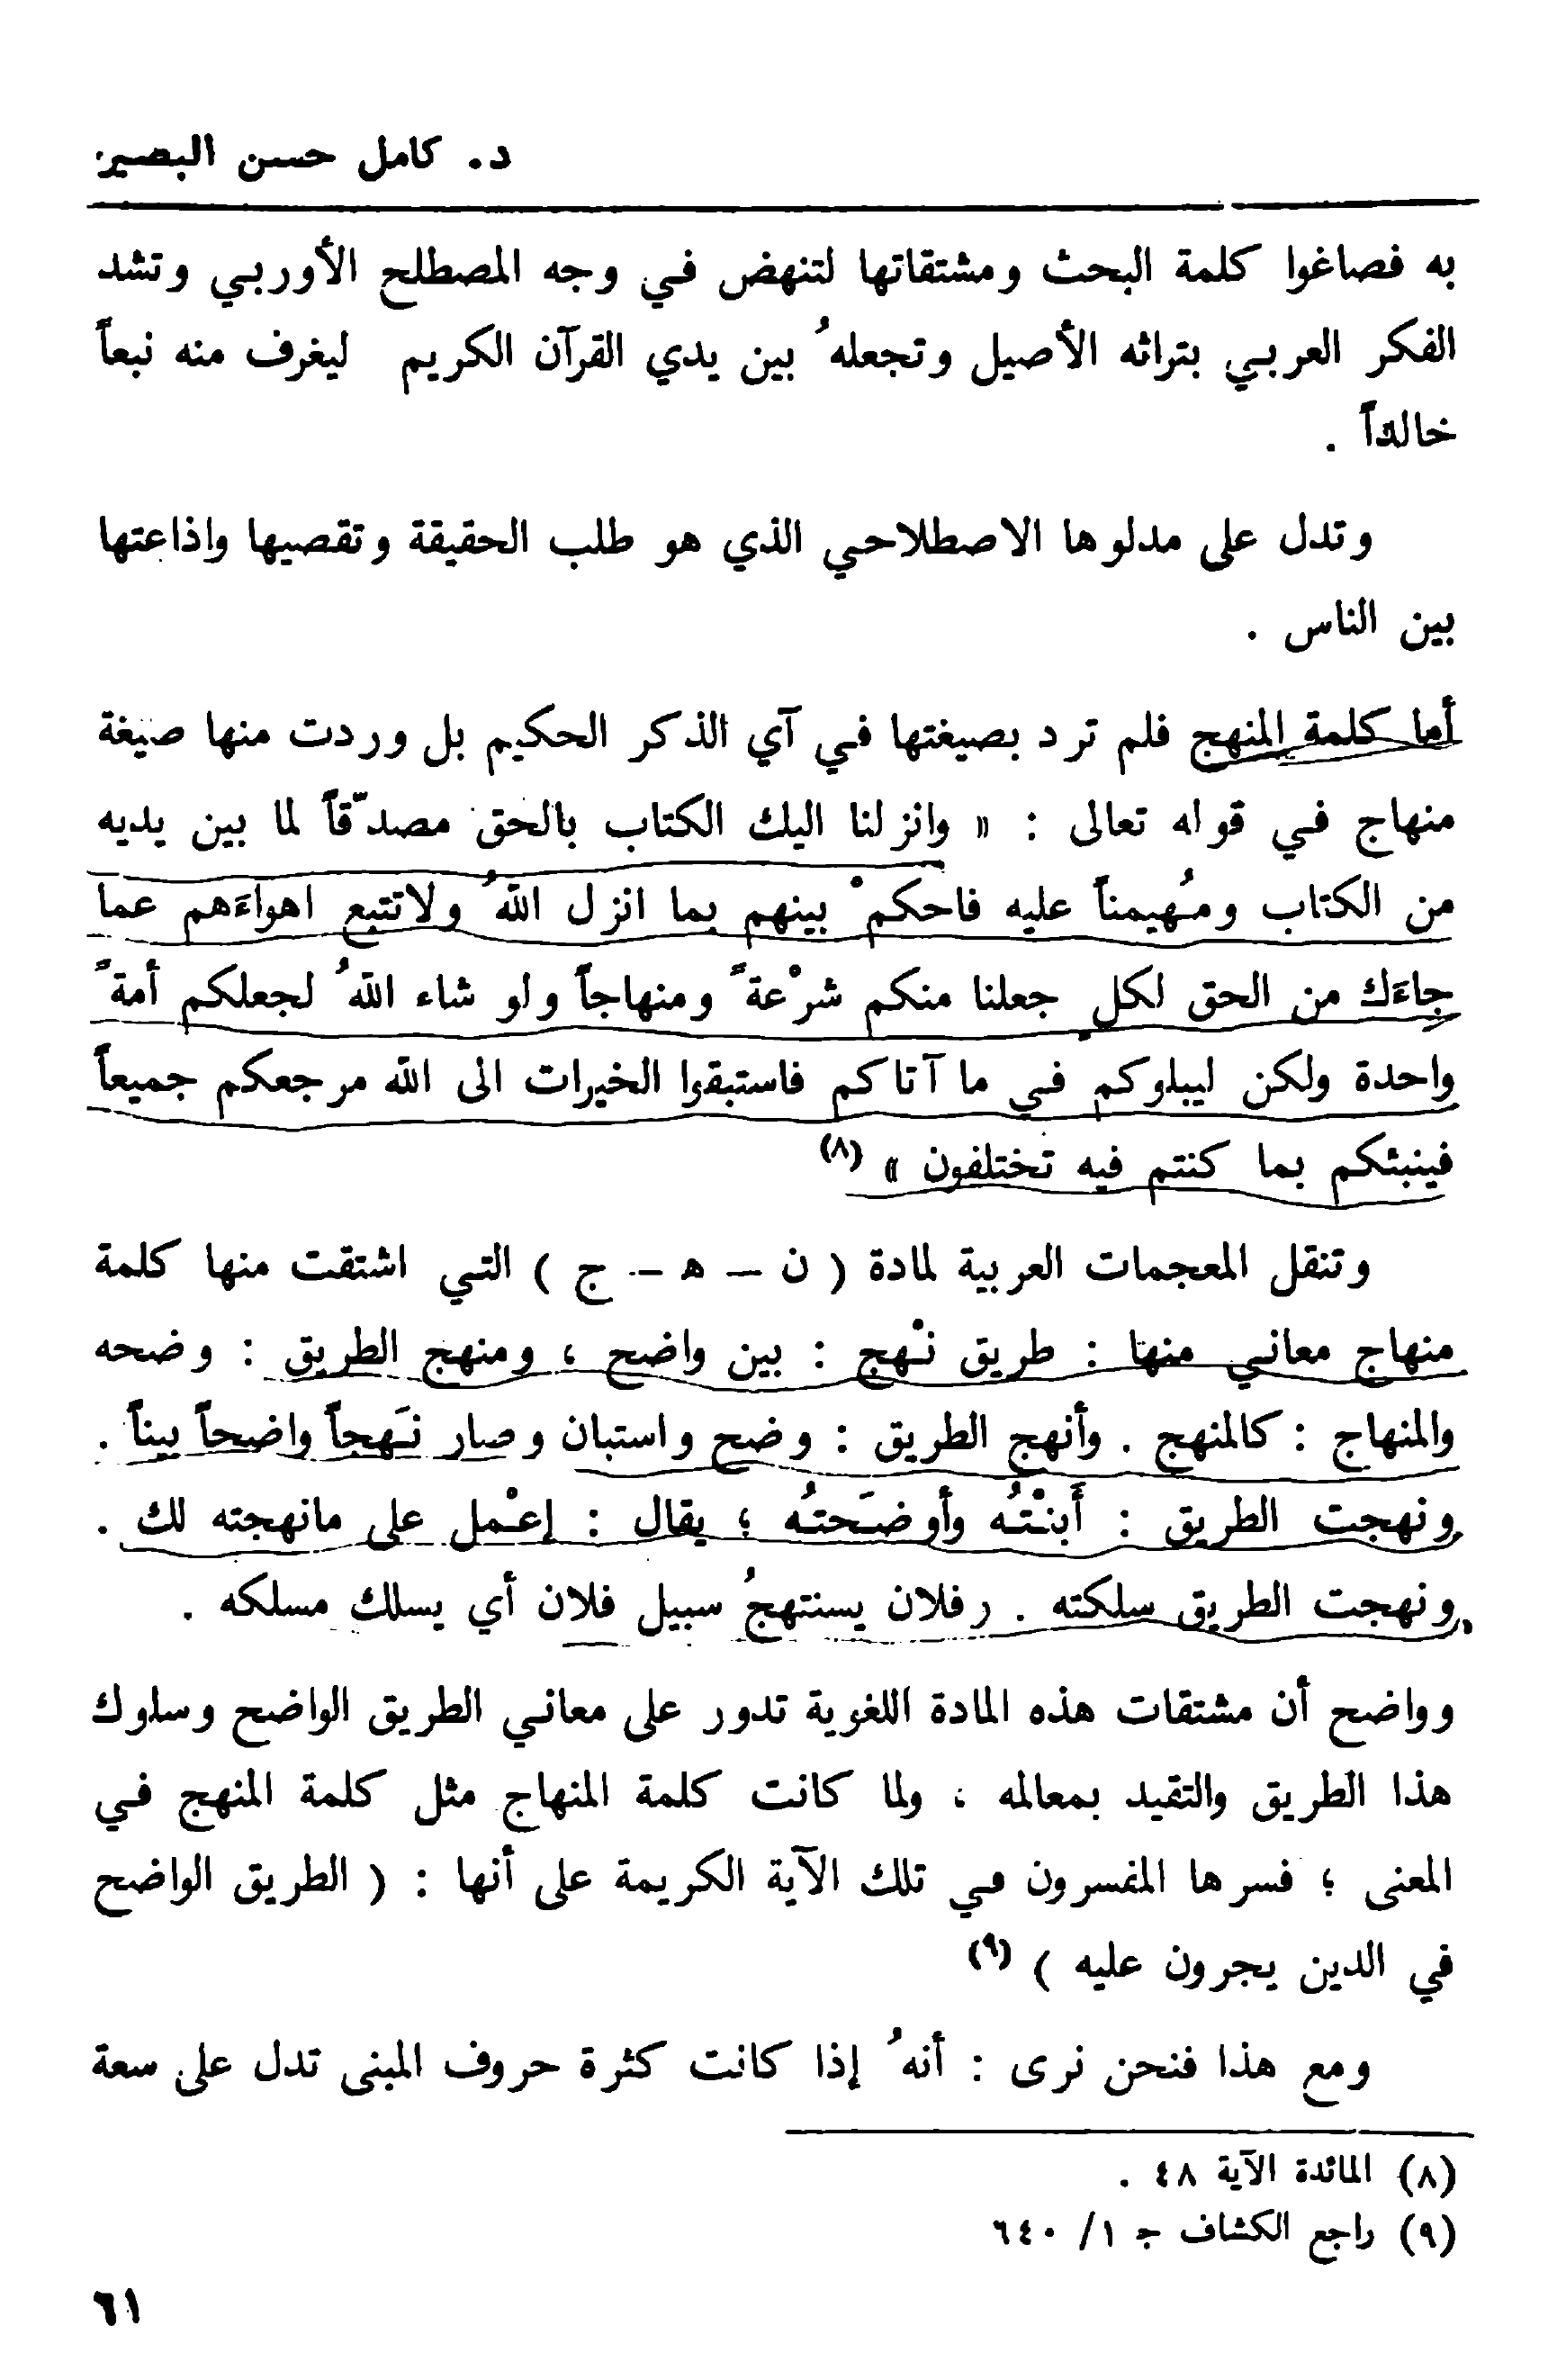 د. كامل حسن البصير
به فصاغوا كلمة البحث ومشتقاتها لتنهض في وجه المصطلح الأوربي وتشد
الفكر العربي بتراثه الأصيل وتجعلهُ بين يدي القرآن الكريم ليغرف منه نبعاً
خالداً .
وتدل على مدلولها الاصطلاحي الذي هو طلب الحقيقة وتقصيها واذاعتها
بين الناس .
أما كلمة المنهج فلم ترد بصيغتها في آي الذكر الحكيم بل وردت منها صيغة
منهاج في قوله تعالى : « وانزلنا اليك الكتاب بالحق مصدّقاً لما بين يديه
من الكتاب ومُهيمناً عليه فاحكمْ بينهم بما انزل اللهُ ولاتتبع اهواءَهم عما
جاءَك من الحق لكلٍ جعلنا منكم شرْعةً ومنهاجاً ولو شاء اللهُ لجعلكم أمةً
واحدة ولكن ليبلوكم في ما آتاكم فاستبقوا الخيرات الى الله مرجعكم جميعاً
فينبئكم بما كنتم فيه تختلفون » (٨)
وتنقل المعجمات العربية لمادة ( ن – ه – ج ) التي اشتقت منها كلمة
منهاج معاني منها : طريق نْهج : بين واضح ، ومنهج الطريق : وضحه
والمنهاج : كالمنهج . وأنهج الطريق : وضح واستبان وصار نَهجاً واضحاً بيناً .
ونهجت الطريق : أَبنْتُه وأوضَحتُه ؛ يقال : إعْمل على مانهجته لك .
ونهجت الطريق سلكته . وفلان يستنهجُ سبيل فلان أي يسلك مسلكه .
وواضح أن مشتقات هذه المادة اللغوية تدور على معاني الطريق الواضح وسلوك
هذا الطريق والتقيد بمعالمه ، ولما كانت كلمة المنهاج مثل كلمة المنهج في
المعنى ؛ فسرها المفسرون في تلك الآية الكريمة على أنها : ( الطريق الواضح
في الدين يجرون عليه ) (٩)
ومع هذا فنحن نرى : أنهُ إذا كانت كثرة حروف المبنى تدل على سعة
(٨) المائدة الآية ٤٨ .
(٩) راجع الكشاف ج ١/ ٦٤٠
٦١